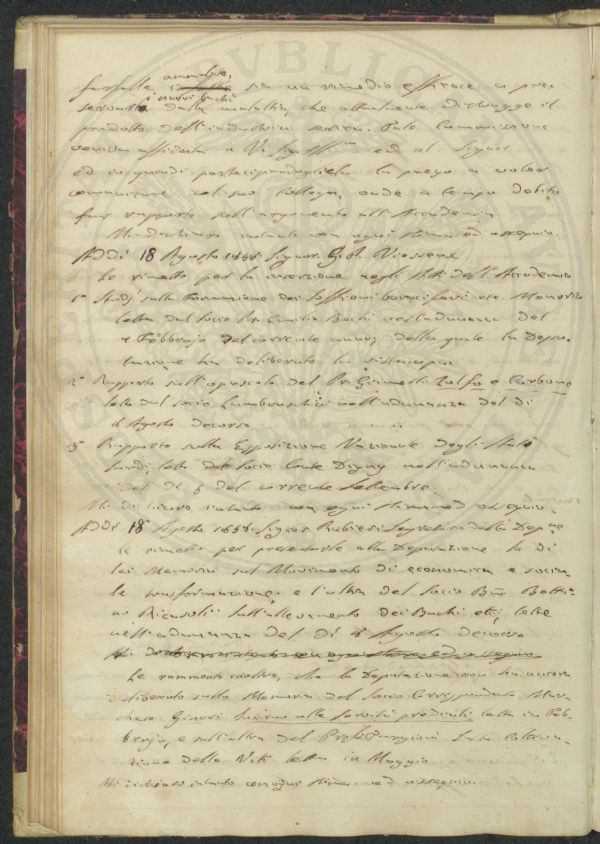 ammalate,
farfalle sia un rimedio efficace a pre-
i nuovi bachi
servare dalla malattia, che attualmente distrugge il
prodotto dell'industria serica. Tale Commissione
veniva affidata a V. ed al Signor
ed io quindi partecipandoglielo la prego a voler
comunicare col suo Collega, onde a tempo debito
fare rapporto sull'argomento all'Accademia
Mi dichiaro intanto con ogni stima ed ossequio.
Addì 18 Agosto 1858. Signor Vieusseux
Le rimetto per la inserzione negli Atti dell'Accademia
1° Studj sulla Formazione dei Soffioni boraciferi etc. Memoria
letta dal Socio Pr. Emilio Bechi nell'adunanza del
Febbrajo del corrente anno; della quale la Depu-
tazione ha deliberato la stampa.
2° Rapporto sull'opuscolo del Pr. Zolfo e Carbone
letto dal Socio Lambruschini nell'adunanza del dì
di Agosto decorso
3° Rapporto sulla Esposizione Nazionale degli Stati
Sardi, letto dal Socio Conte Digny nell'adunanza
del dì 5 del corrente Settembre.
Mi dichiaro intanto con ogni stima ed ossequio.
Addì 18 Agosto 1858. Signor Rubieri Segretario della Depne
Le rimetto per presentarle alla Deputazione la di
lei Memoria sul Movimento di economica e socia-
le trasformazione; e l'altra del Socio Bne Betti-
no Ricasoli sull'allevamento dei Bachi etc; lette
nell'adunanza del dì Agosto decorso
Le rammento inoltre, che la Deputazione non ha ancora
deliberato sulla Memoria del Socio Corrispondente Mar-
chese Ginori intorno alle servitù prediali, letta in Feb-
brajo, e sull'altra del sulla Coltiva-
zione delle Viti letta in Maggio.
Mi dichiaro intanto con ogni stima ed ossequio.